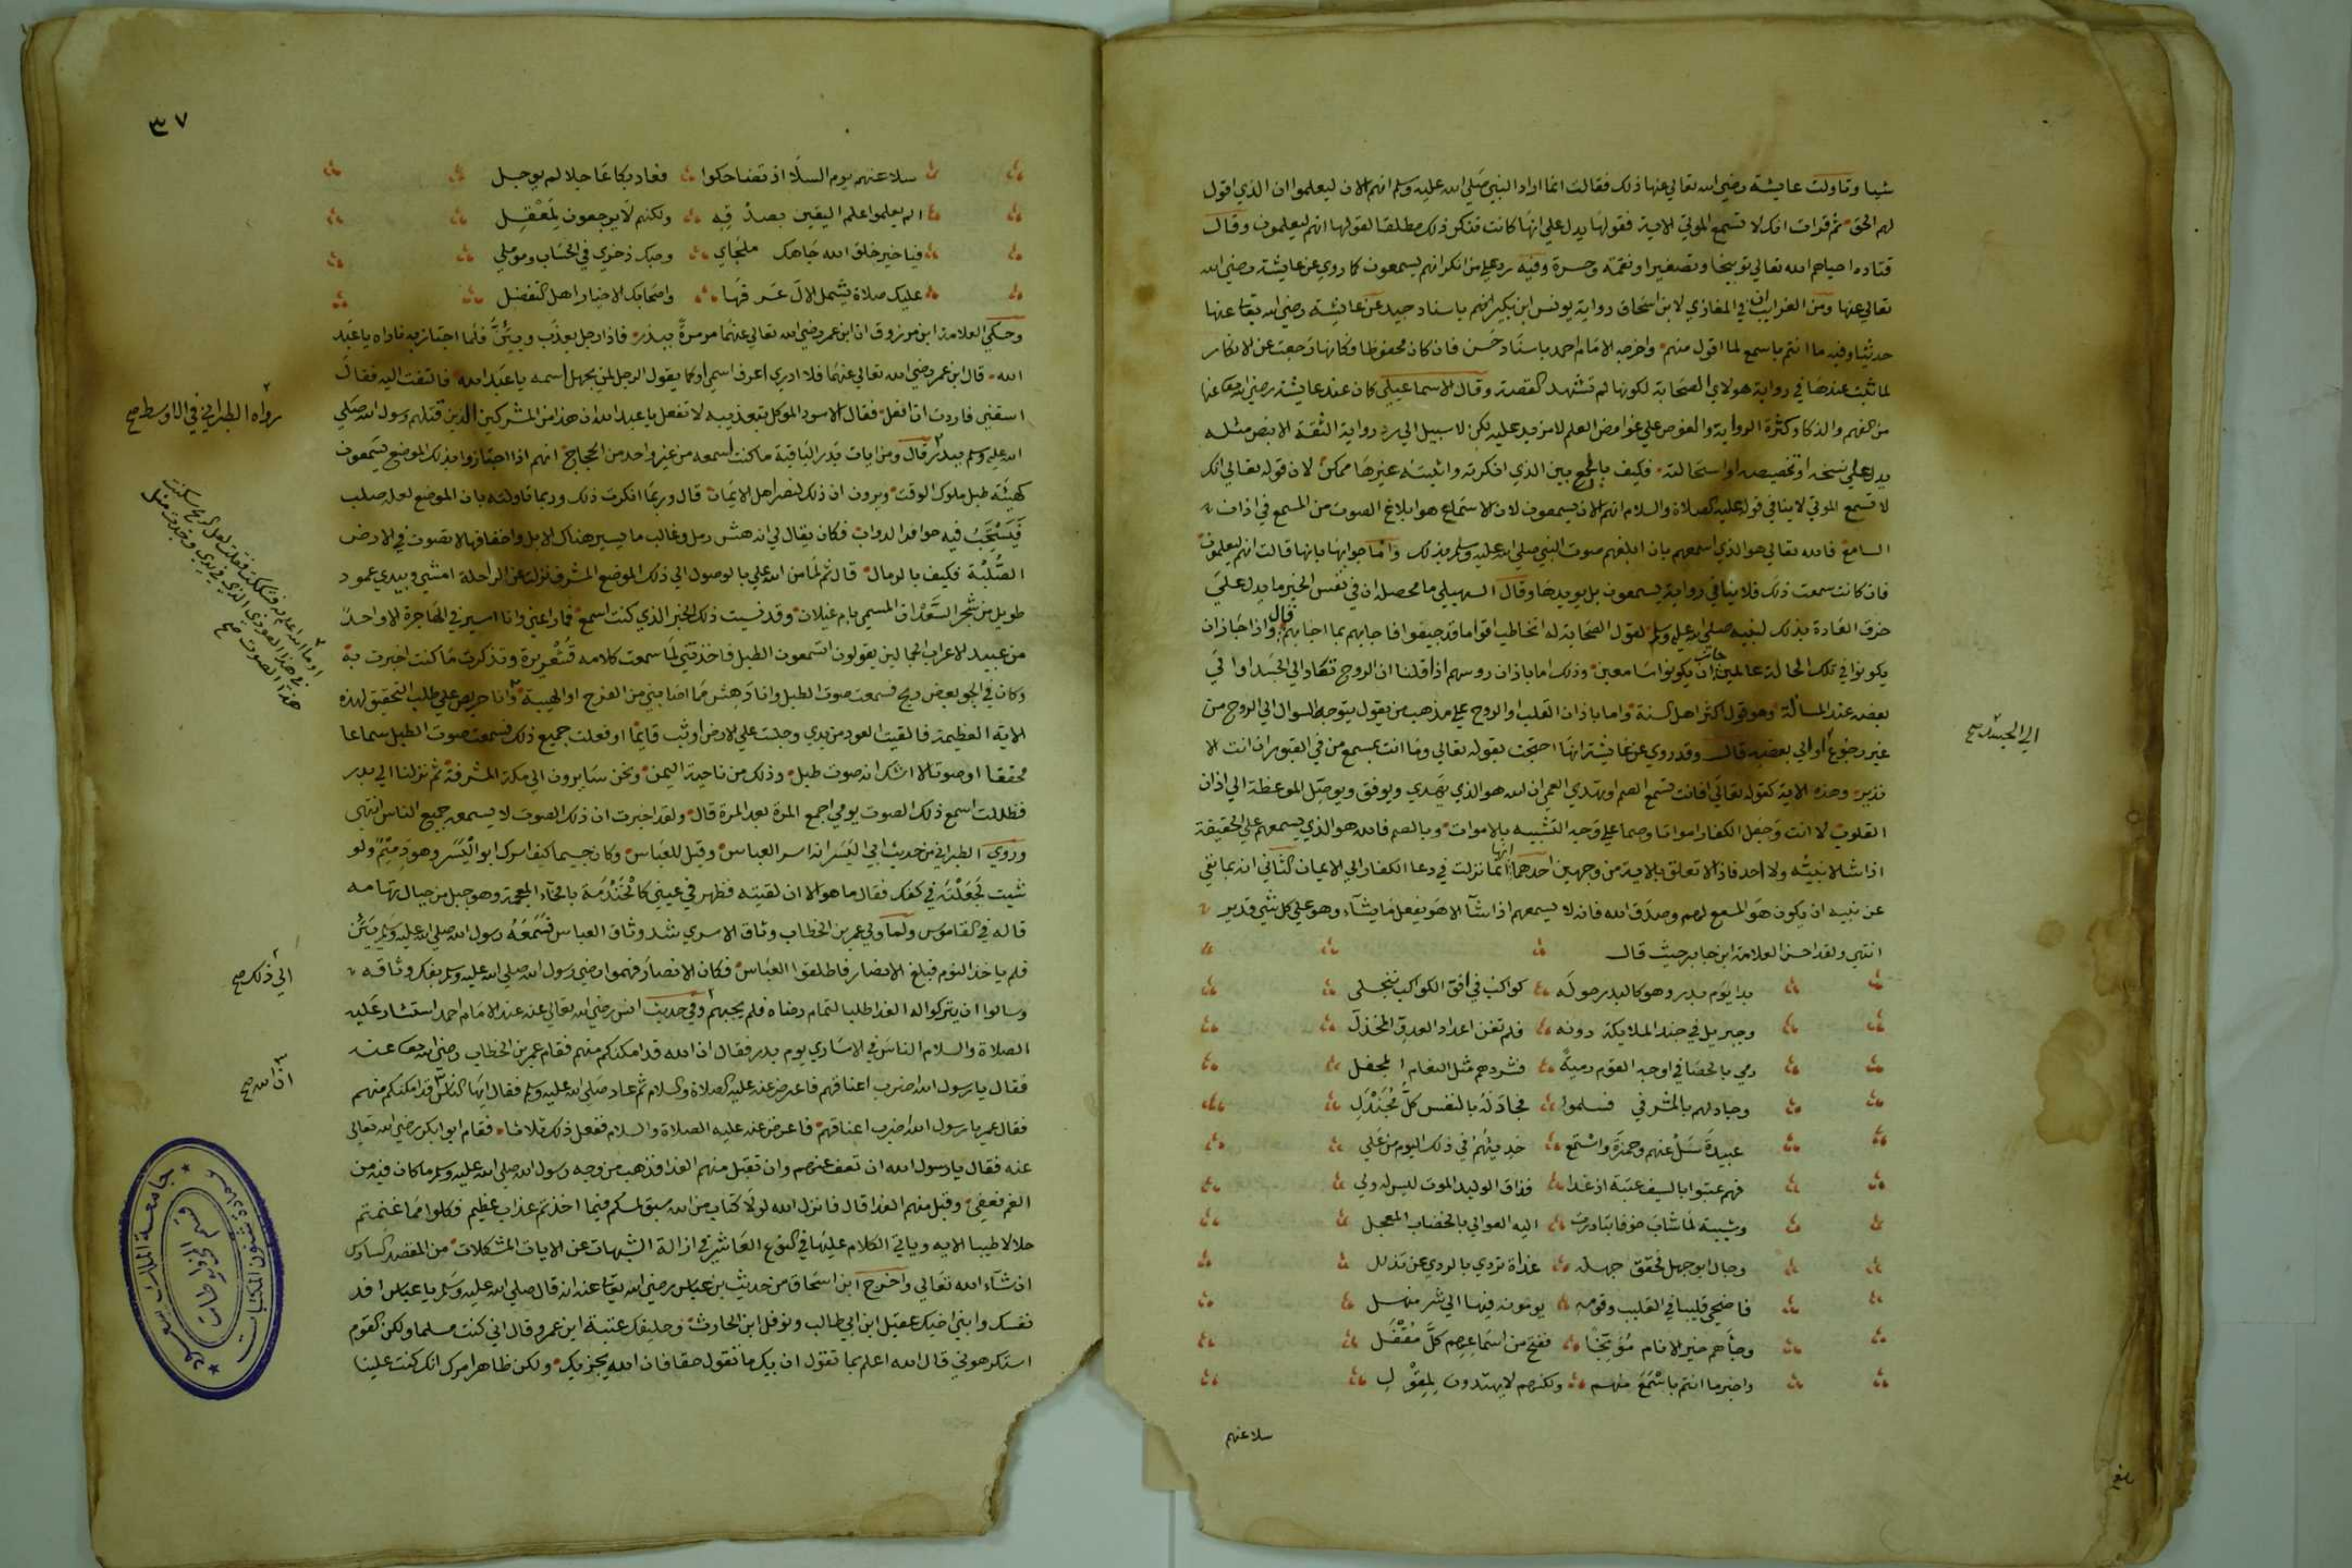 شيا وتاولت عايشة رضي الله تعالى عنها ذلك فقالت انما اراد النبي صلى الله عليه وسلم انهم الان ليعلموا ان الذي اقول
لهم الحق ثم قرات انك لا تسمع الموتي الاية فقولها يدل علي انها كانت تنكر ذلك مطلقا لقولها انهم ليعلمون وقال
قتاده احياهم الله تعالي توبيخا وتصغيرا ونقمة وحسرة وفيه رد علي من انكر انهم يسمعون كما روي عن عايشة رضي الله
تعالي عنها ومن الغرايب ان في المغازي لابن اسحاق رواية يونس ابن بكير باسناد جيد عن عايشة رضي الله تعا عنها
حديثا وفيه ما انتم باسمع لما اقول منهم واخرجه الامام احمد باسناد حسن فان كان محفوظا فكانها رجعت عن الانكار
لما ثبت عندها في رواية هولاي الصحابة لكونها لم تشهد القصة وقال الاسماعيلي كان عند عايشة رضي الله تعا عنها
من الفهم والذكا وكثرة الرواية والغوص علي غوامض العلم لامزيد عليه لكن لا سبيل الي رد رواية الثقة الا بنص مثله
يدل علي نسخه او تخصيصه او استحالته فكيف بالجمع بين الذي انكرته واثبته غيرها ممكن لان قوله تعالي انك
لا تسمع الموتي لاينافي قوله عليه الصلاة والسلام انهم الان يسمعون لان الاستماع هو ابلاغ الصوت من المسمع في اذان
السامع فالله تعالي هو الذي اسمعهم بان ابلغهم صوت النبي صلي الله عليه وسلم بذلك واما جوابها بانها قالت انهم ليعلمون
فان كانت سمعت ذلك فلا ينافي رواية يسمعون بل يويدها وقال السهيلي ما محصله ان في نفس الخبر ما يدل علي
خرق العادة بذلك لنبيه صلي الله عليه وسلم لقول الصحابة له اتخاطب اقواما قد جيفوا فاجابهم بما اجابهم قال واذا جاز ان
يكونوا في تلك الحالة عالمين جاز ان يكونوا سامعين وذلك اما باذان روسهم اذا قلنا ان الروح تعاد الي الجسد او الي
بعضه عند المسألة وهو قول اكثر اهل السنة واما باذان القلب او الروح علي مذهب من يقول بتوجه السوال الي الروح من
غير رجوع او الي بعضه قال وقد روي عن عايشة انها احتجت بقوله تعالي وما انت بمسمع من في القبور ان انت الا
نذير وهذه الاية كقوله تعالي افانت تسمع الصم او تهدي العمي ان الله هو الذي يهدي ويوفق ويوصل الموعظة الي اذان
القلوب لا انت وجعل الكفار امواتا وصما علي وجه التشبيه بالاموات وبالصم فالله هو الذي يسمعهم علي الحقيقة
اذا شا لا نبيه ولا احد فاذا لا تعلق بالاية من وجهين احدهما انها انما نزلت في دعا الكفار الي الايمان الثاني انه انما نفي
عن نبيه ان يكون هو المسمع لهم وصدق الله فانه لا يسمعهم اذا شآ الا هو يفعل ما يشآء وهو علي كل شي قدير
انتهي ولقد احسن العلامة ابن جابر حيث قال
بدا يوم بدر وهو كالبدر حوله كواكب في افق الكواكب تنجلي
وجبريل في جند الملايكة دونه فلم تغن اعداد العدو المخذل
رمي بالحصا في اوجه القوم رمية فشردهم مثل النعام المجفل
وجادلهم بالمشرفي فسلموا فجاد له بالنفس كل مجندل
عبيدة سل عنهم وحمزة واستمع حديثهم في ذلك اليوم من علي
فهم عتبوا بالسيف عتبة اذ غدا فذاق الوليد الموت ليس له ولي
وشيبة لما شاب خوفا تبادرت اليه العوالي بالخضاب المعجل
وجال ابو جهل فحقق جهله غداة تردي بالردي عن تذلل
فاضحي قليبا في القليب وقومه يومونه فيها الي شر منهل
وجآهم خير الانام موبخا ففتح من اسماعهم كل مقفل
واخبر ما انتم باسمع منهم ولكنهم لايهتدون لمقول
سلا عنهم
الي الجسد صح
٣٧
سلا عنهم يوم السلا اذ تضاحكوا فعاد بكا عاجلا لم يوجل
الم يعلموا علم اليقين بصدقه ولكنهم لا يرجعون لمعقل
فيا خير خلق الله جاهك ملجاي وحبك ذخري في الحساب وموملي
عليك صلاة يشمل الال عرفها واصحابك الاخيار اهل التفضل
وحكي العلامة ابن مرزوق ان ابن عمر رضي الله تعالي عنهما مر مرة ببدر فاذا رجل يعذب ويئن فلما اجتاز به ناداه يا عبد
الله قال ابن عمر رضي الله تعالي عنهما فلا ادري اعرف اسمي او كما يقول الرجل لمن يجهل اسمه يا عبد الله فالتفت اليه فقال
اسقني فاردت ان افعل فقال الاسود الموكل بتعذيبه لا تفعل يا عبد الله ان هذا من المشركين الذين قتلهم رسول الله صلي
الله عليه وسلم ببدر قال ومن ايات بدر الباقية ما كنت اسمعه من غير واحد من الحجاج انهم اذا اجتازوا بذلك الموضع يسمعون
كهيئة طبل ملوك الوقت ويرون ان ذلك لنصر اهل الايمان قال وربما انكرت ذلك وربما تاولته بان الموضع لعله صلب
فيستجيب فيه حوافر الدواب فكان يقال لي انه هش رمل وغالب ما يسير هناك الابل واخفافها لا تصوت في الارض
الصلبة فكيف بالرمال قال ثم لما من الله علي بالوصول الي ذلك الموضع المشرف نزلت عن الراحلة امشي وبيدي عمود
طويل من شجر السعدان المسمي بام غيلان وقد نسيت ذلك الخبر الذي كنت اسمع فما راعني وانا اسير في الهاجرة الا واحد
من عبيد الاعراب الجمالين يقولون اتسمعون الطبل فاخذتني لما سمعت كلامه قشعريرة وتذكرت ما كنت اخبرت به
وكان في الجو بعض ريح فسمعت صوت الطبل وانا دهش مما اصابني من الفرح او الهيبة وانا حريص علي طلب التحقيق لهذه
الاية العظيمة فالقيت العود من يدي وجلست علي الارض او ثبت قايما او فعلت جميع ذلك فسمعت صوت الطبل سماعا
محققا او صوتا لا اشك انه صوت طبل وذلك من ناحية اليمن ونحن سايرون الي مكة المشرفة ثم نزلنا الي بدر
فظللت اسمع ذلك الصوت يومي اجمع المرة بعد المرة قال ولقد اخبرت ان ذلك الصوت لا يسمعه جميع الناس انتهي
وروي الطبراني من حديث ابي اليسر انه اسر العباس وقيل للعباس وكان جسيما كيف اسرك ابو اليسر وهو دميم ولو
شيت لجعلته في كفك فقال ما هو الا ان لقيته فظهر في عيني كالخندمة بالخآء المعجمة وهو جبل من جبال تهامه
قاله في القاموس ولما ولي عمر بن الخطاب وثاق الاسري شد وثاق العباس فسمعه رسول الله صلي الله عليه وسلم يئن
فلم ياخذه النوم فبلغ الانصار فاطلقوا العباس فكان الانصار فهموا رضي رسول الله صلي الله عليه وسلم بفك وثاقه
وسالوا ان يتركوا له الفدا طلبا لتمام رضاه فلم يجبهم وفي حديث انس رضي الله تعالي عنه عند الامام احمد استشار عليه
الصلاة والسلام الناس في الاساري يوم بدر فقال ان الله قد امكنكم منهم فقام عمر بن الخطاب رضي الله تعا عنه
فقال يا رسول الله اضرب اعناقهم فاعرض عنه عليه الصلاة والسلام ثم عاد صلي الله عليه وسلم فقال ايها الناس قد امكنكم منهم
فقال عمر يا رسول الله اضرب اعناقهم فاعرض عنه عليه الصلاة والسلام ففعل ذلك ثلاثا فقام ابو بكر رضي الله تعالي
عنه فقال يا رسول الله ان تعف عنهم وان تقبل منهم الفدا فذهب من وجه رسول الله صلي الله عليه وسلم ما كان فيه من
الغم فعفي وقبل منهم الفدا قال فانزل الله لولا كتاب من الله سبق لمسكم فيما اخذتم عذاب عظيم فكلوا مما غنمتم
حلالا طيبا الايه وياتي الكلام عليها في النوع العاشر في ازالة الشبهات عن الايات المشكلات من المقصد السادس
ان شآء الله تعالي واخرج ابن اسحاق من حديث بن عباس رضي الله تعا عنه انه قال صلي الله عليه وسلم يا عباس افد
نفسك وابني اخيك عقيل ابن ابي طالب ونوفل ابن الحارث وحليفك عتبة ابن عمرو قال اني كنت مسلما ولكن القوم
استكرهوني قال الله اعلم بما تقول ان يك ما تقول حقا فان الله يجزيك ولكن ظاهر امرك انك كنت علينا
رواه الطبراني في الاوسط صح
الي ذلك صح
ان الله صح
جامعة الملك سعود
عمادة شئون المكتبات
قسم المخطوطات